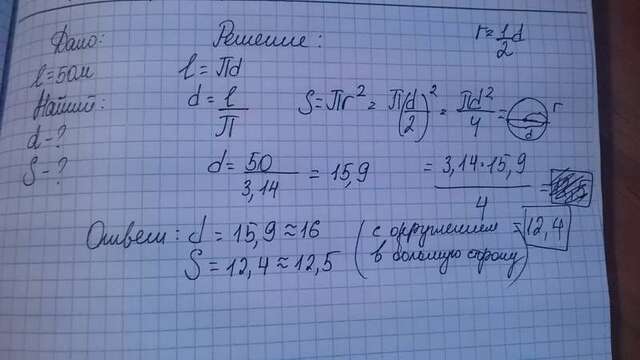 Дано:
l=50м
Найти:
d-?
S-?
Решение:
r=1/2 d
l=Пd
d=l/П
S=Пr²=П(d/2)²=Пd²/4=
r
d
d=50/3,14=15,9
=3,14·15,9/4=
=12,4
Ответ: d=15,9≈16
S=12,4≈12,5
(с округлением
в большую сторону)